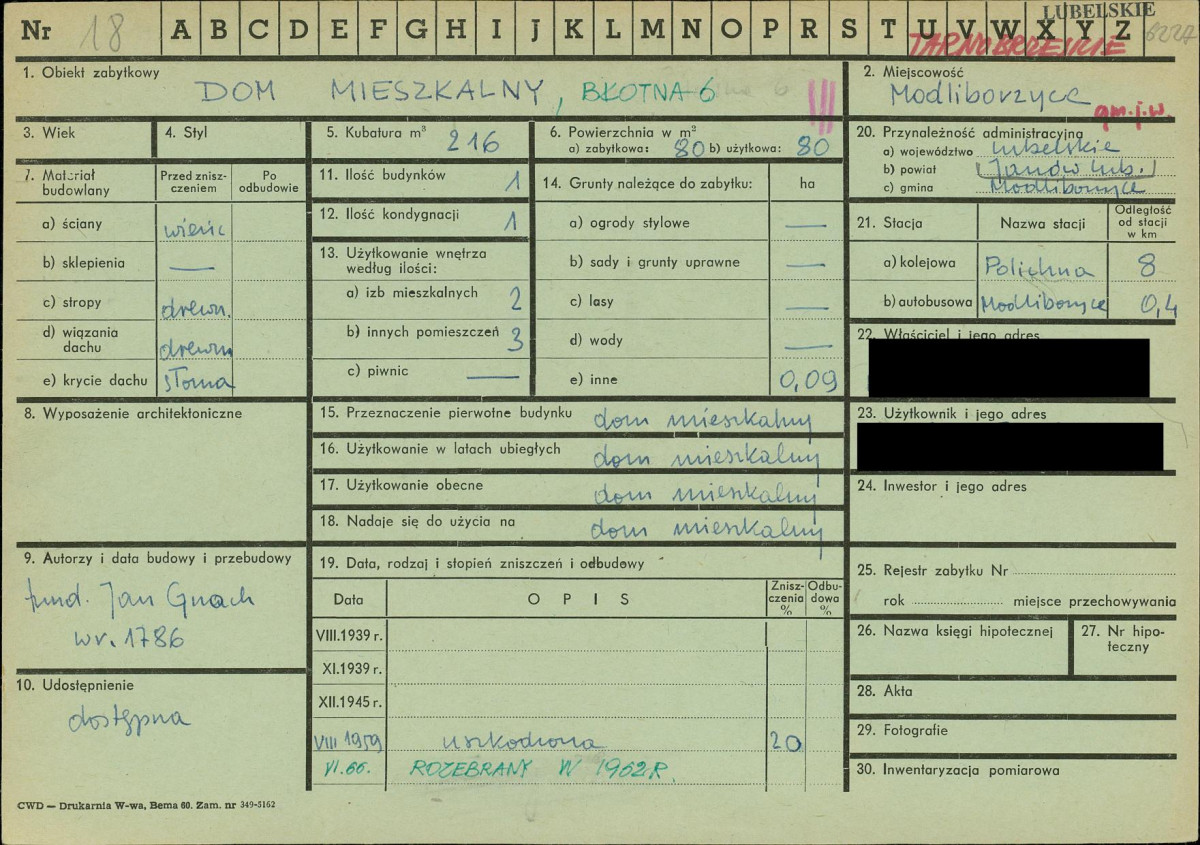 LUBELSKIE
Nr 18 A B C D E F G H I J K L M N O P R S T U V W X Y Z
TARNOBRZESKIE
1. Obiekt zabytkowy
DOM MIESZKALNY, BŁOTNA 6
III
2. Miejscowość
Modliborzyce
gm.j.w.
3. Wiek
4. Styl
5. Kubatura m³ 216
6. Powierzchnia w m²
a) zabytkowa: 80 b) użytkowa: 80
20. Przynależność administracyjna
a) województwo Lubelskie
b) powiat Janów Lub.
c) gmina Modliborzyce
7. Materiał budowlany
Przed zniszczeniem
Po odbudowie
a) ściany wieńc
b) sklepienia —
c) stropy drewn.
d) wiązania dachu drewn
e) krycie dachu słoma
11. Ilość budynków 1
12. Ilość kondygnacji 1
13. Użytkowanie wnętrza według ilości:
a) izb mieszkalnych 2
b) innych pomieszczeń 3
c) piwnic —
14. Grunty należące do zabytku: ha
a) ogrody stylowe —
b) sady i grunty uprawne —
c) lasy —
d) wody —
e) inne 0,09
21. Stacja
Nazwa stacji
Odległość od stacji w km
a) kolejowa Polichna 8
b) autobusowa Modliborzyce 0,4
22. Właściciel i jego adres
23. Użytkownik i jego adres
24. Inwestor i jego adres
8. Wyposażenie architektoniczne
15. Przeznaczenie pierwotne budynku dom mieszkalny
16. Użytkowanie w latach ubiegłych dom mieszkalny
17. Użytkowanie obecne dom mieszkalny
18. Nadaje się do użycia na dom mieszkalny
9. Autorzy i data budowy i przebudowy
fund. Jan Gnach
wr. 1786
10. Udostępnienie
dostępna
19. Data, rodzaj i stopień zniszczeń i odbudowy
Data
OPIS
Zniszczenia %
Odbudowa %
VIII.1939 r.
XI.1939 r.
XII.1945 r.
VIII 1959 uszkodzona 20
VI.66. ROZEBRANY W 1962 R.
25. Rejestr zabytku Nr
rok miejsce przechowywania
26. Nazwa księgi hipotecznej
27. Nr hipoteczny
28. Akta
29. Fotografie
30. Inwentaryzacja pomiarowa
CWD — Drukarnia W-wa, Bema 60. Zam. nr 349-5162